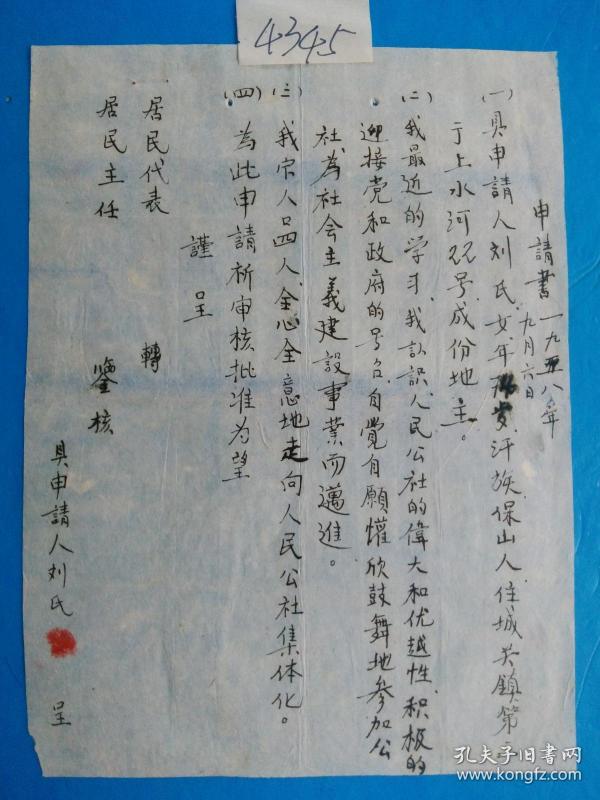 4345
申請書 一九五八年
九月六日
(一)具申請人刘氏、女年 岁、汗族、保山人、住城关鎮第
于上水河 号、成份地主。
(二)我最近的学习、我认识人民公社的偉大和优越性、积极的
迎接党和政府的号召、自覚自願懽欣鼓舞地参加公
社、為社会主義建設事業而邁進。
(三)我家人口四人、全心全意地走向人民公社集体化。
(四)為此申請祈审核批准为望
謹呈
居民代表 轉
居民主任 鑒核
具申請人刘氏 呈
孔夫子旧书网
www.kongfz.com